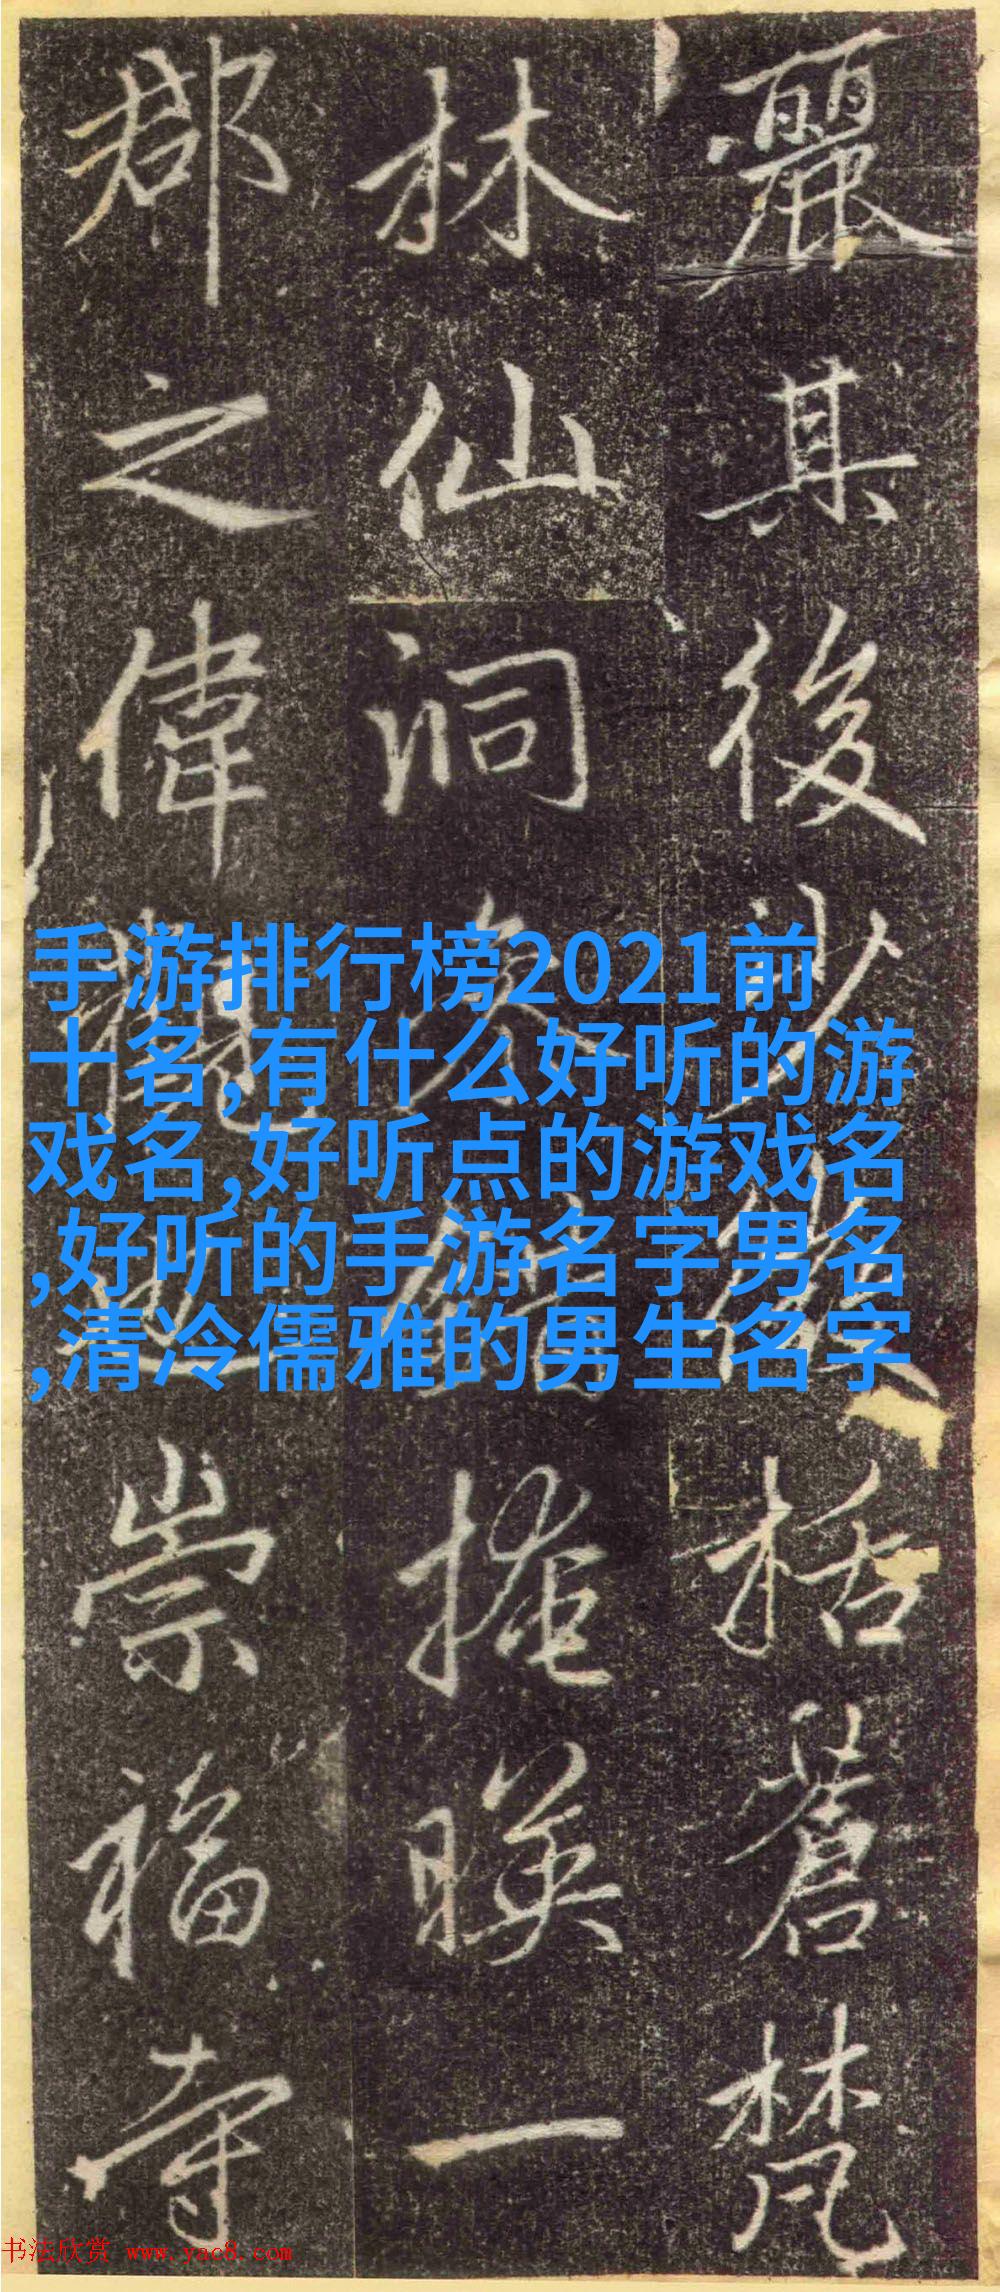 麗其後括蒼梵
林仙洞掩暎一
郡之偉觀也崇福寺
手游排行榜2021前
十名,有什么好听的游
戏名,好听点的游戏名
,好听的手游名字男名
,清冷儒雅的男生名字
书法欣赏 www.yac8.com